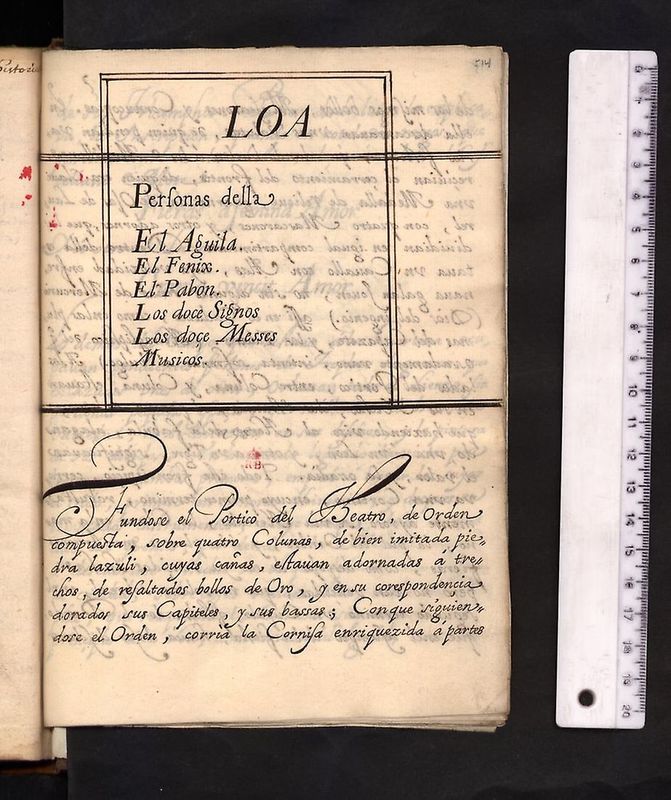 514
LOA
Perſonas della
El Aguila.
El Fenix.
El Pabon.
Los doce Signos
Los doce Messes
Musicos.
RB
Fundose el Portico del Theatro, de Orden
compuesta, sobre quatro Colunas, de bien imitada pie-
dra lazuli, cuyas cañas, eſtauan adornadas á tre-
chos, de reſaltados bollos de Oro, y en su corespondencia
dorados sus Capiteles, y sus bassas; Conque siguien-
dose el Orden, corria la Corniſa enriquezida a partes
0 1 2 3 4 5 6 7 8 9 10 11 12 13 14 15 16 17 18 19 20